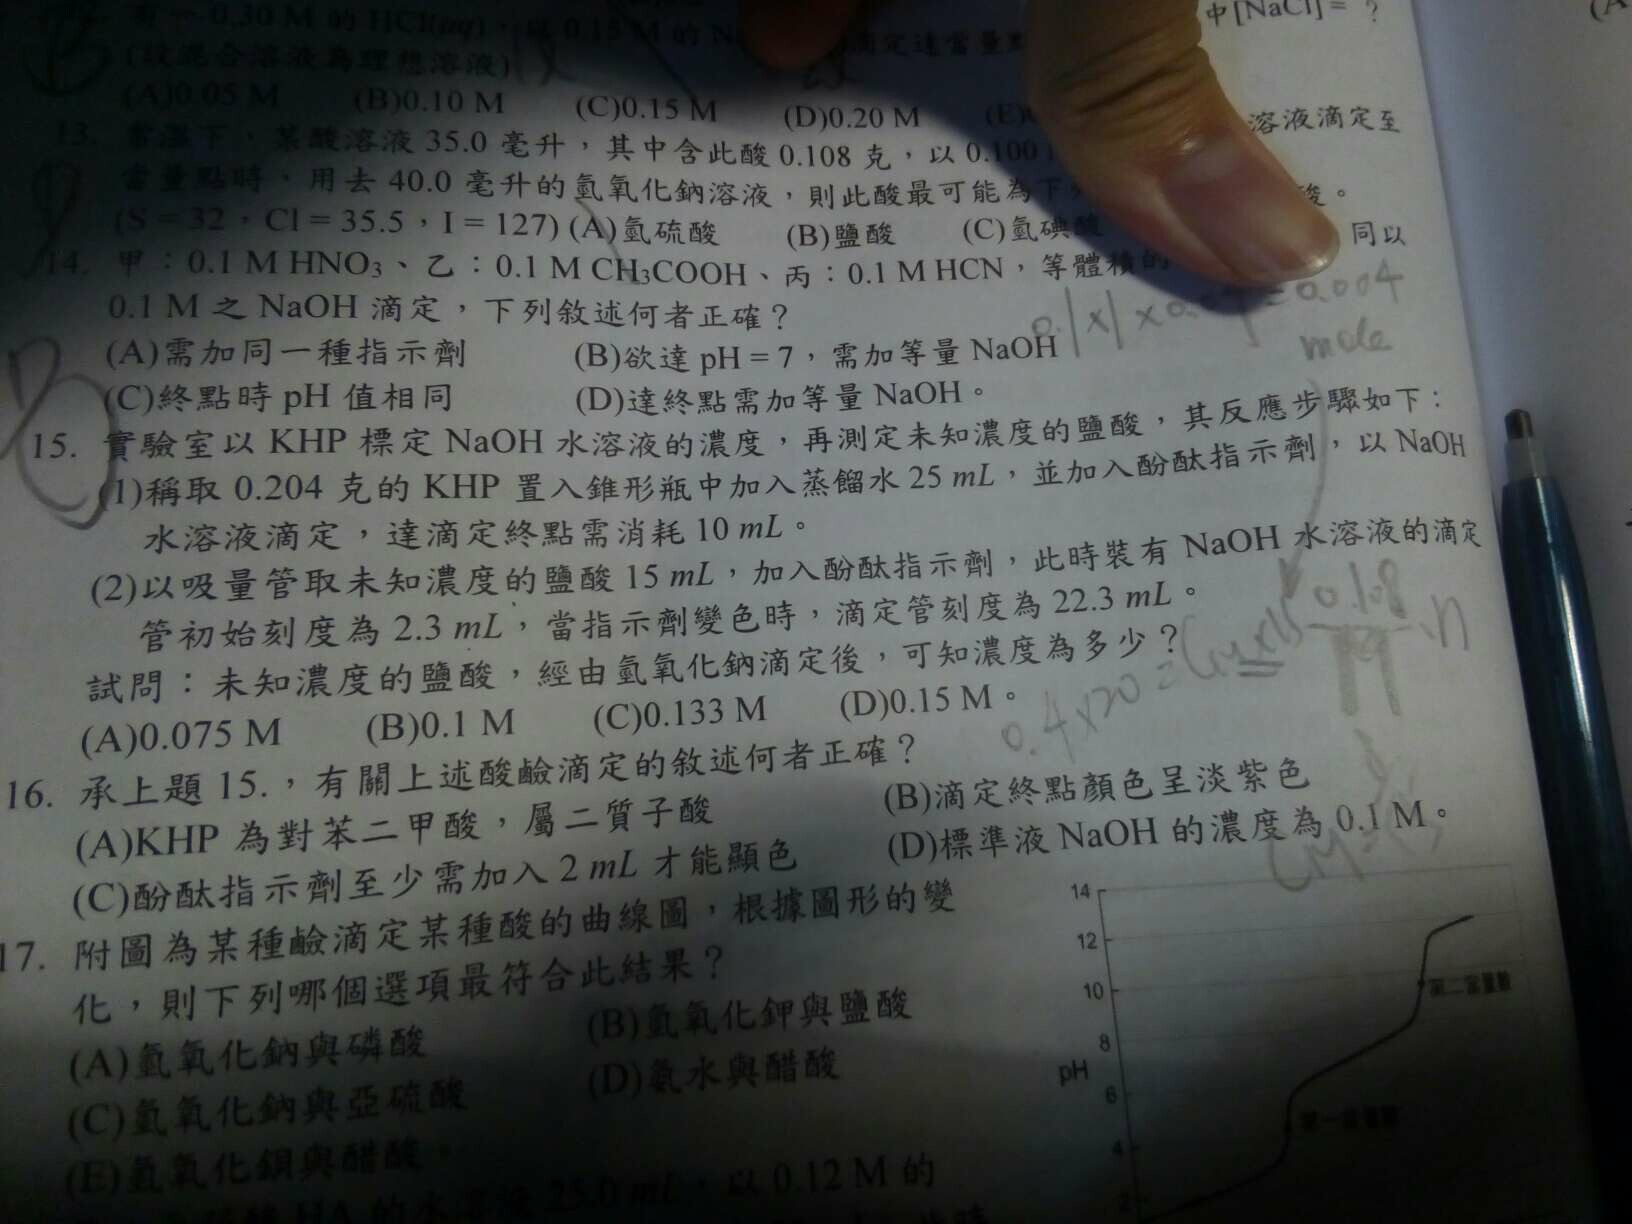 有一 0.30 M 的 HCl(aq),以 0.15 M 的 滴定達當量 中[NaCl] = ?
(設混合溶液為理想溶液)
(A)0.05 M (B)0.10 M (C)0.15 M (D)0.20 M (E)
13. 常溫下,某酸溶液 35.0 毫升,其中含此酸 0.108 克,以 0.100 溶液滴定至
當量點時,用去 40.0 毫升的氫氧化鈉溶液,則此酸最可能為下 酸。
(S = 32,Cl = 35.5,I = 127) (A)氫硫酸 (B)鹽酸 (C)氫碘酸
14. 甲:0.1 M HNO₃、乙:0.1 M CH₃COOH、丙:0.1 M HCN,等體積的 同以
0.1 M 之 NaOH 滴定,下列敘述何者正確?
0.004
mole
(A)需加同一種指示劑 (B)欲達 pH = 7,需加等量 NaOH
(C)終點時 pH 值相同 (D)達終點需加等量 NaOH。
15. 實驗室以 KHP 標定 NaOH 水溶液的濃度,再測定未知濃度的鹽酸,其反應步驟如下:
(1)稱取 0.204 克的 KHP 置入錐形瓶中加入蒸餾水 25 mL,並加入酚酞指示劑,以 NaOH
水溶液滴定,達滴定終點需消耗 10 mL。
(2)以吸量管取未知濃度的鹽酸 15 mL,加入酚酞指示劑,此時裝有 NaOH 水溶液的滴定
管初始刻度為 2.3 mL,當指示劑變色時,滴定管刻度為 22.3 mL。
0.108
試問:未知濃度的鹽酸,經由氫氧化鈉滴定後,可知濃度為多少?
(A)0.075 M (B)0.1 M (C)0.133 M (D)0.15 M。
16. 承上題 15.,有關上述酸鹼滴定的敘述何者正確?
(A)KHP 為對苯二甲酸,屬二質子酸 (B)滴定終點顏色呈淡紫色
(C)酚酞指示劑至少需加入 2 mL 才能顯色 (D)標準液 NaOH 的濃度為 0.1 M。
17. 附圖為某種鹼滴定某種酸的曲線圖,根據圖形的變
化,則下列哪個選項最符合此結果?
(A)氫氧化鈉與磷酸 (B)氫氧化鉀與鹽酸
(C)氫氧化鈉與亞硫酸 (D)氨水與醋酸
(E)氫氧化鋇與醋酸。
14
12
10
第二當量點
8
pH
6
第一當量點
4
2
HA 的水溶液 25.0 mL,以 0.12 M 的